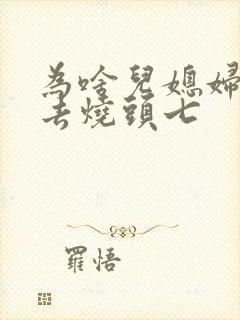 為啥兒媳婦
去燒頭七
羅悟